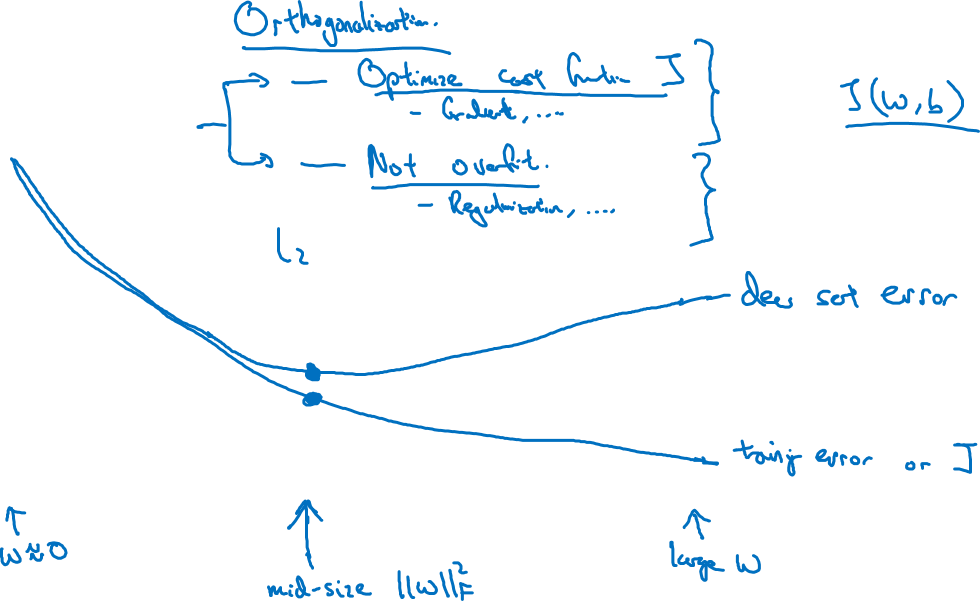 Orthogonalization.
— Optimize cost function J
- Gradient, ....
J(w,b)
— Not overfit.
- Regularization, ....
L2
dev set error
training error or J
w≈0
mid-size ||w||²F
large w